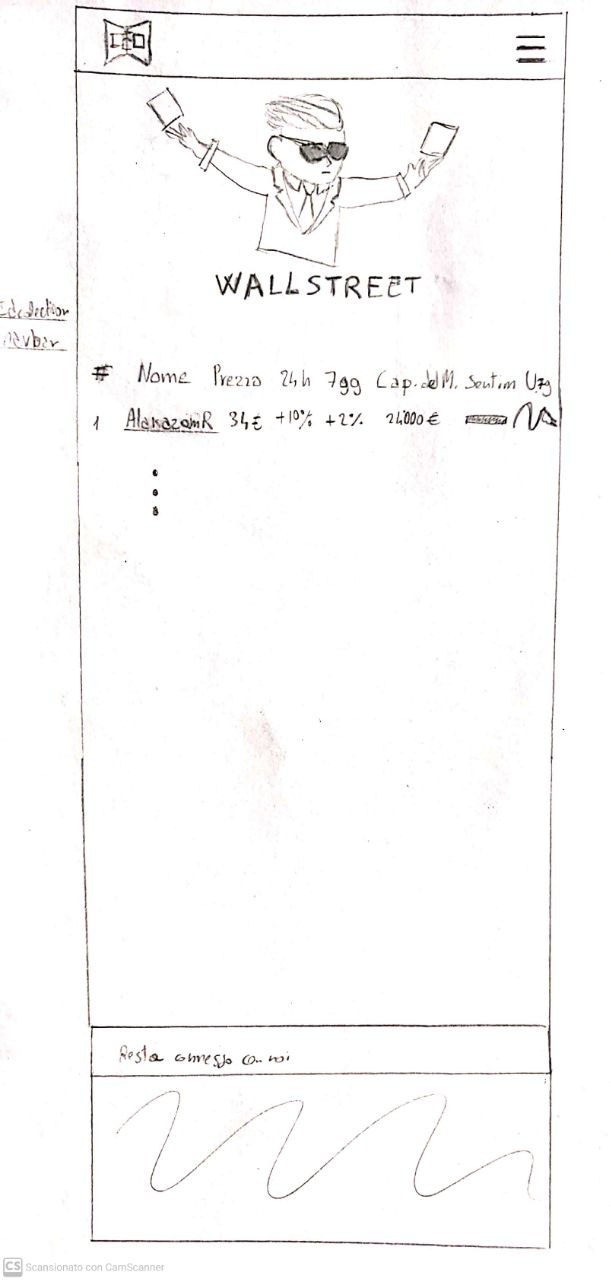 WALLSTREET
# Nome Prezzo 24h 7gg Cap. del M. Sentim U7g
1 AlakazamR 34€ +10% +2% 24000€
Resta connesso con noi
CS Scansionato con CamScanner